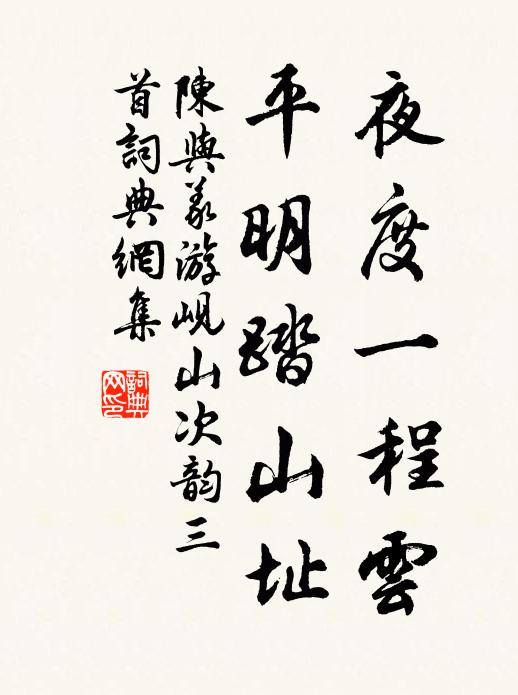 夜度一程雲
平明踏山址
陳與義游峴山次韵三
首詞典網集
詞典网印